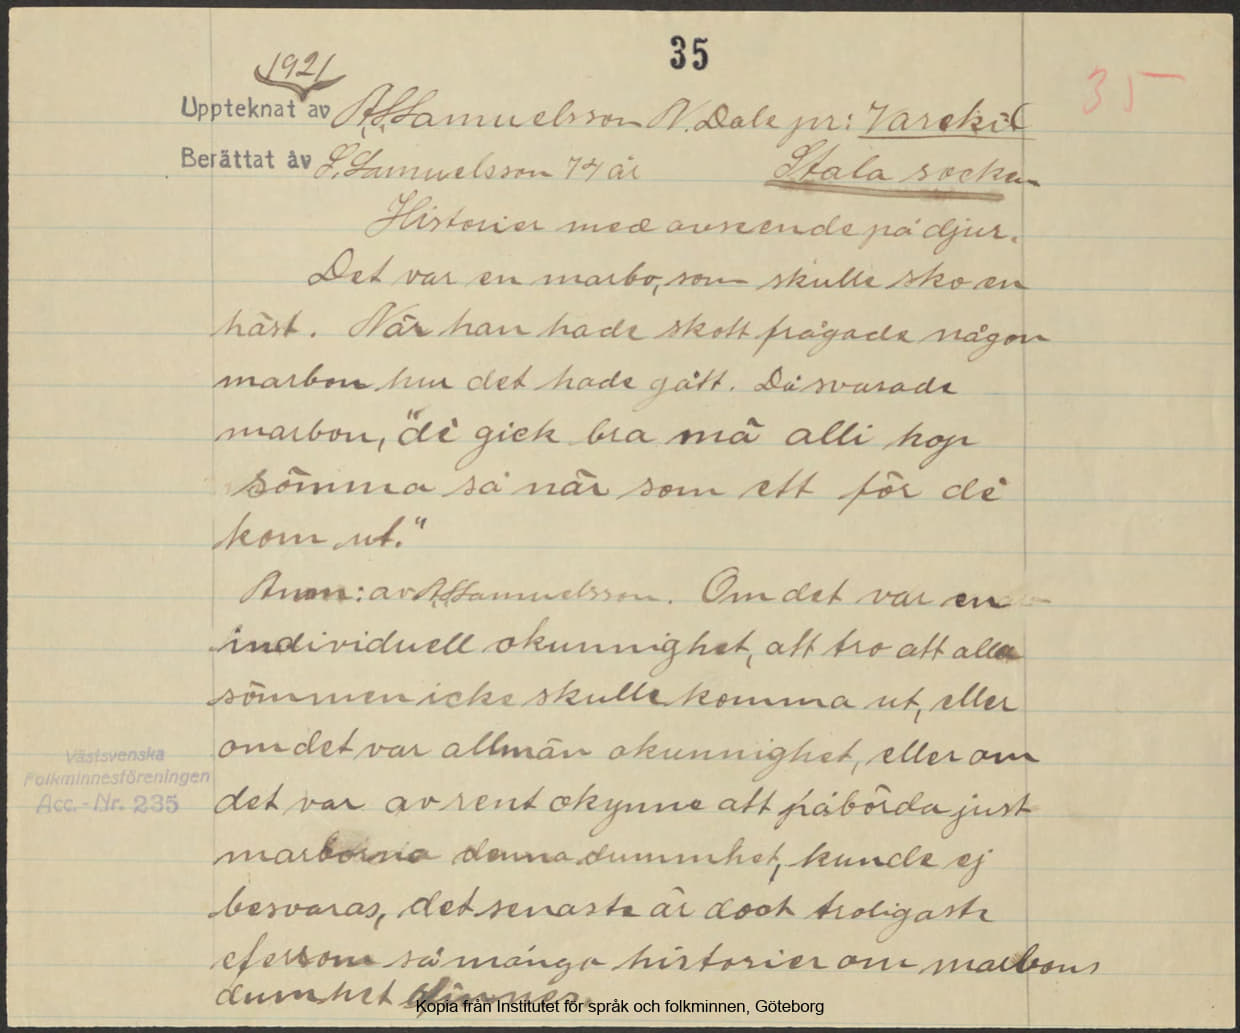 35
35
1921
Uppteknat av A. S. Samuelsson N. Dale pr: Varekil
Berättat av S. Samuelsson 74 år Stala socken
Historier med avseende på djur.
Det var en marbo, som skulle sko en
häst. När han hade skott frågade någon
marbon hur det hade gått. Då svarade
marbon, "dè gick bra mä alli hop
sömma så när som ett för dè
kom ut."
Anm: av A. S. Samuelsson. Om det var en
individuell okunnighet, att tro att alla
sömmen icke skulle komma ut, eller
om det var allmän okunnighet, eller om
det var av rent okynne att påbörda just
marborna denna dummhet, kunde ej
besvaras, det senaste är dock troligaste
efersom så många historier om marbons
dumhet finnes.
Västsvenska
Folkminnesföreningen
Acc.-Nr. 235
Kopia från Institutet för språk och folkminnen, Göteborg